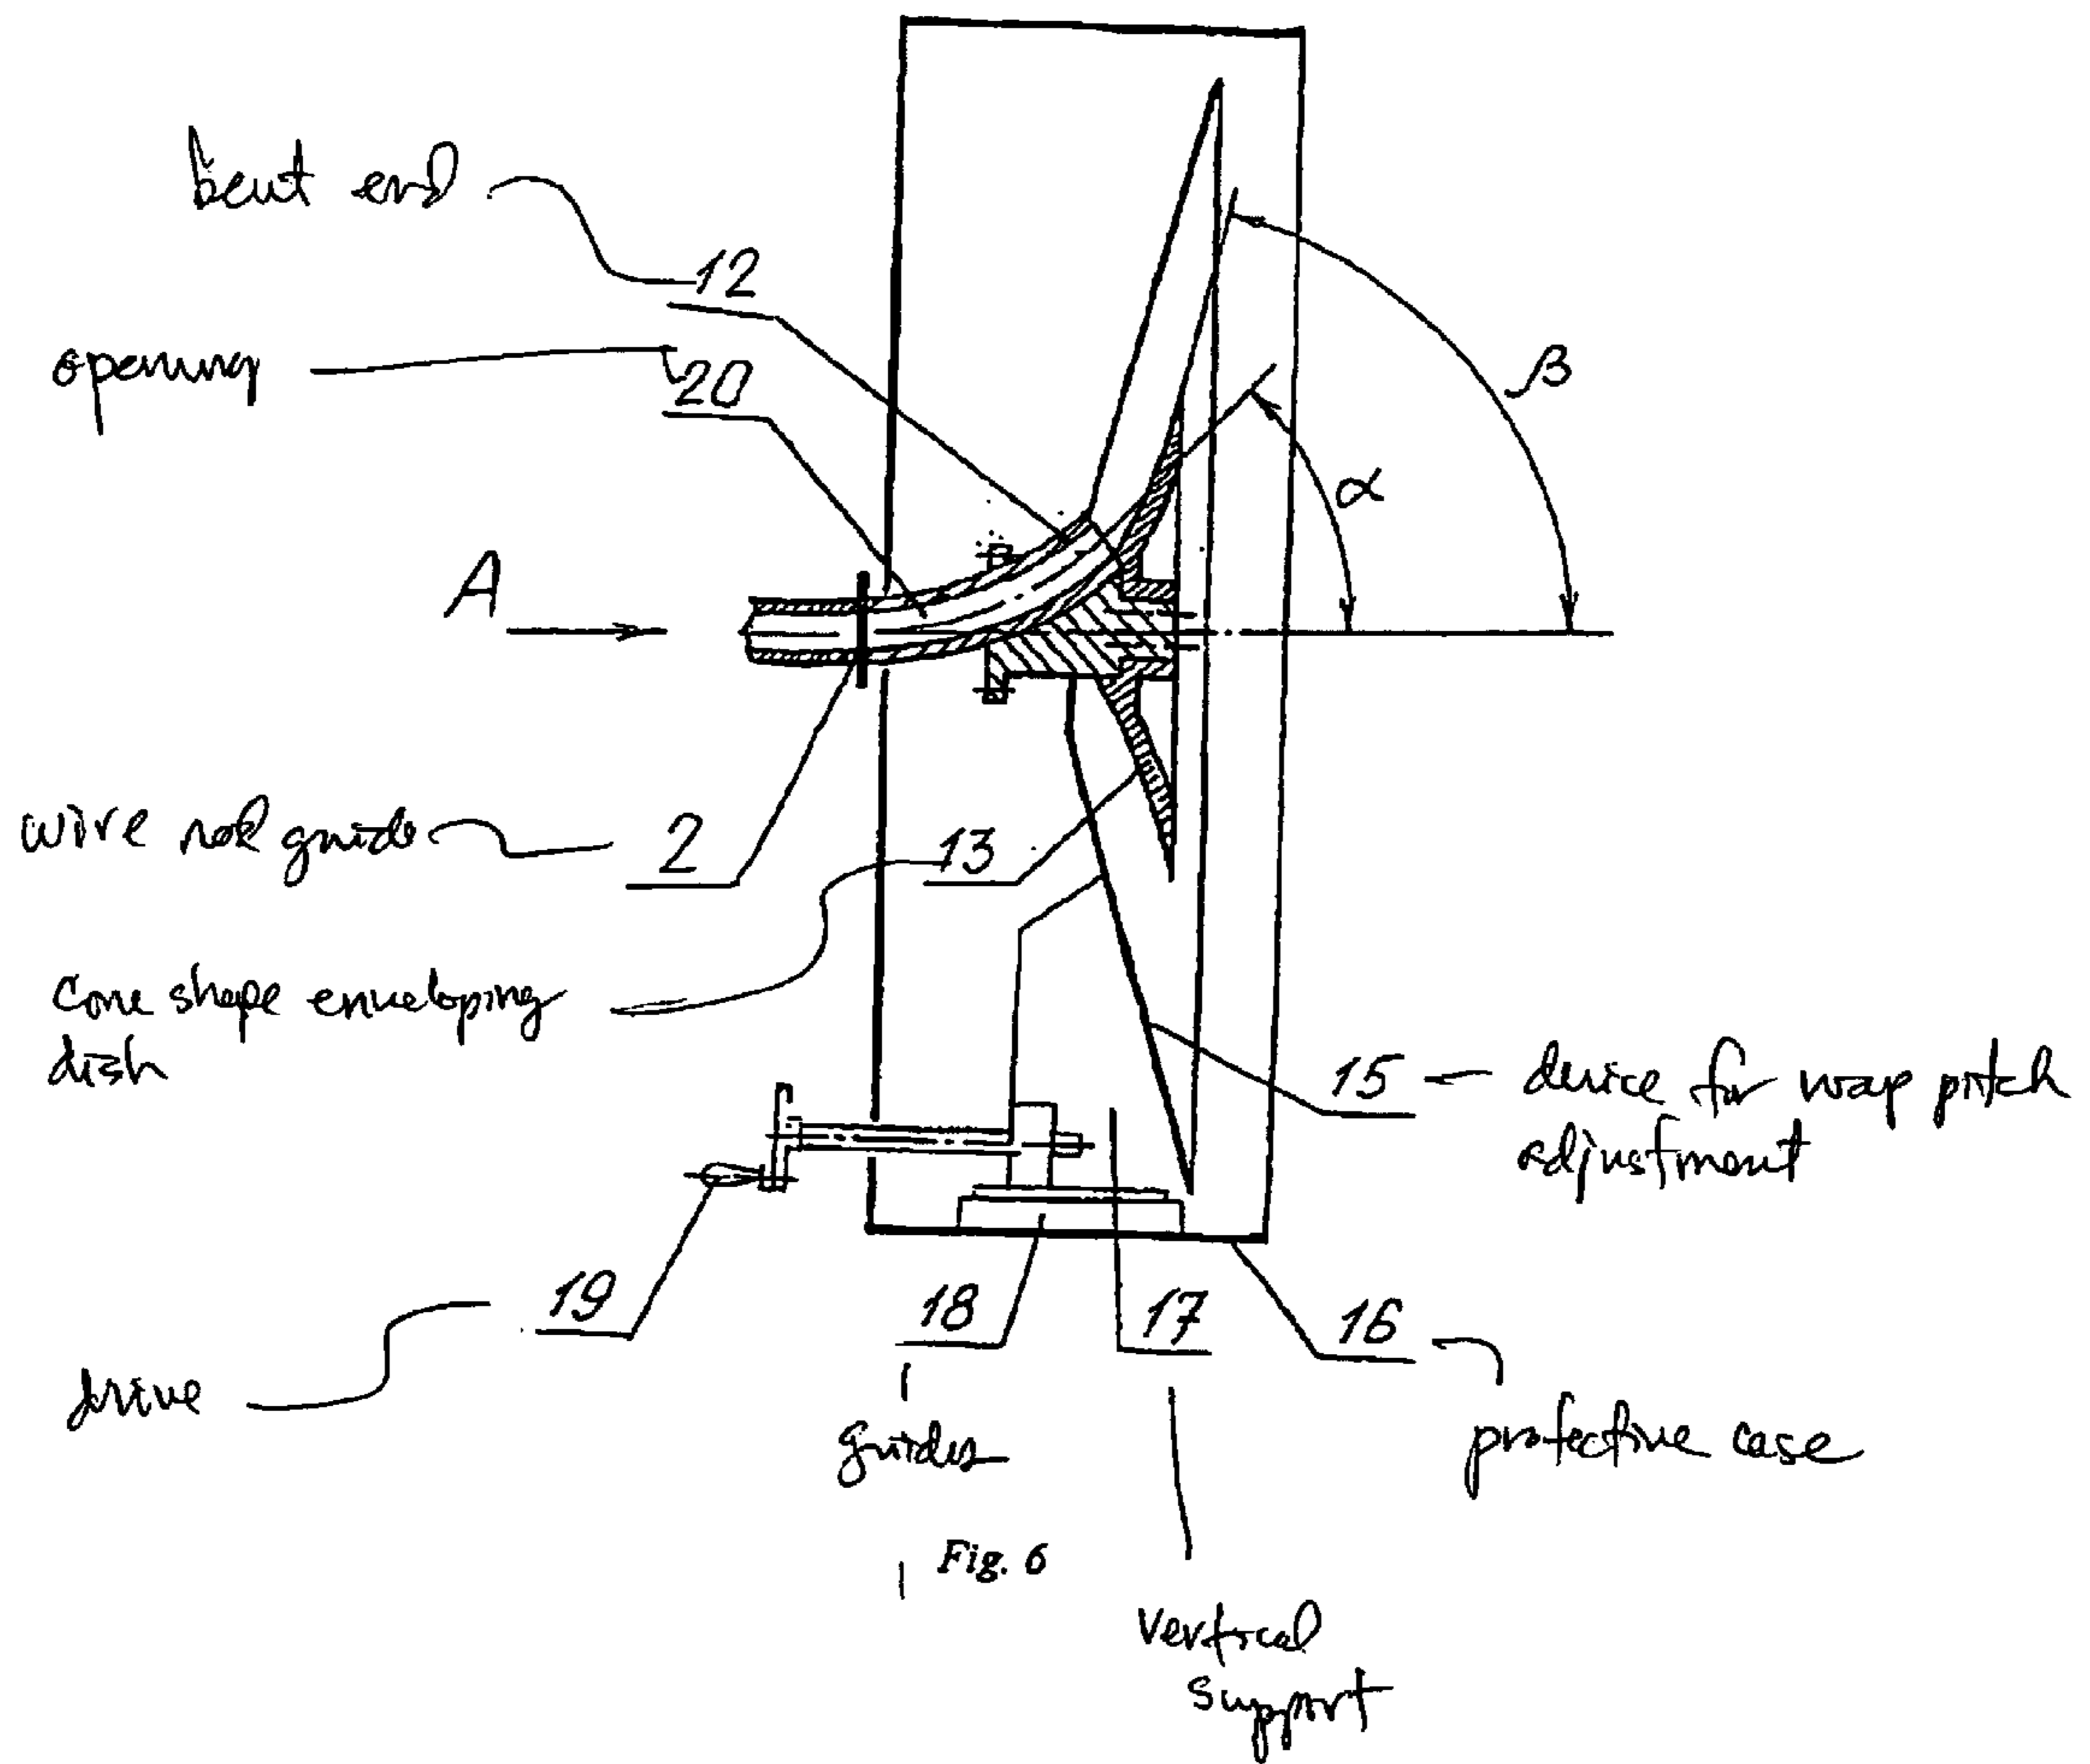 bent end
12
opening
20
β
α
A
wire rod guide
2
13
cone shape enveloping
dish
15 - device for wrap pitch
adjustment
19
18
17
16
drive
guides
protective case
Fig. 6
vertical
support